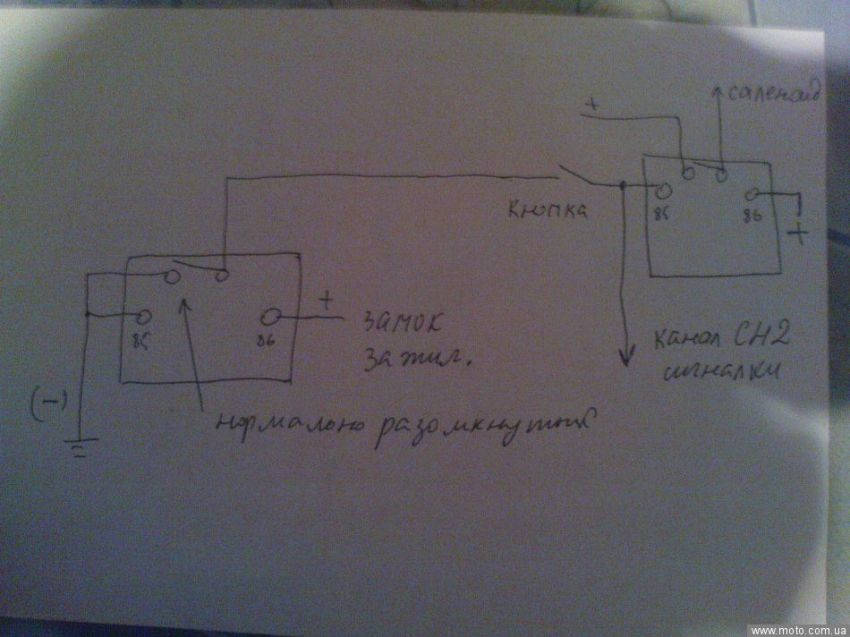 +
саленоид
кнопка
85
86
+
+
замок
зажиг.
85
86
канал CH2
сигналки
(-)
нормально разомкнутый
www.moto.com.ua